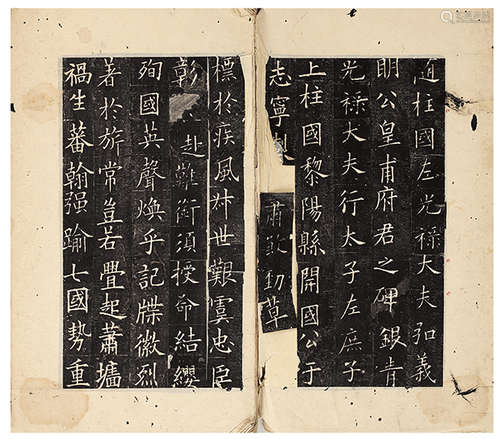 隨柱國左光祿大夫弘義
明公皇甫府君之碑銀青
光祿大夫行太子左庶子
上柱國黎陽縣開國公于
志寧製
肅煞勁草
標於疾風叔世艱虞忠臣
彰赴難銜須授命結纓
殉國英聲煥乎記牒徽烈
著於旂常豈若釁起蕭墻
禍生蕃翰强踰七國勢重